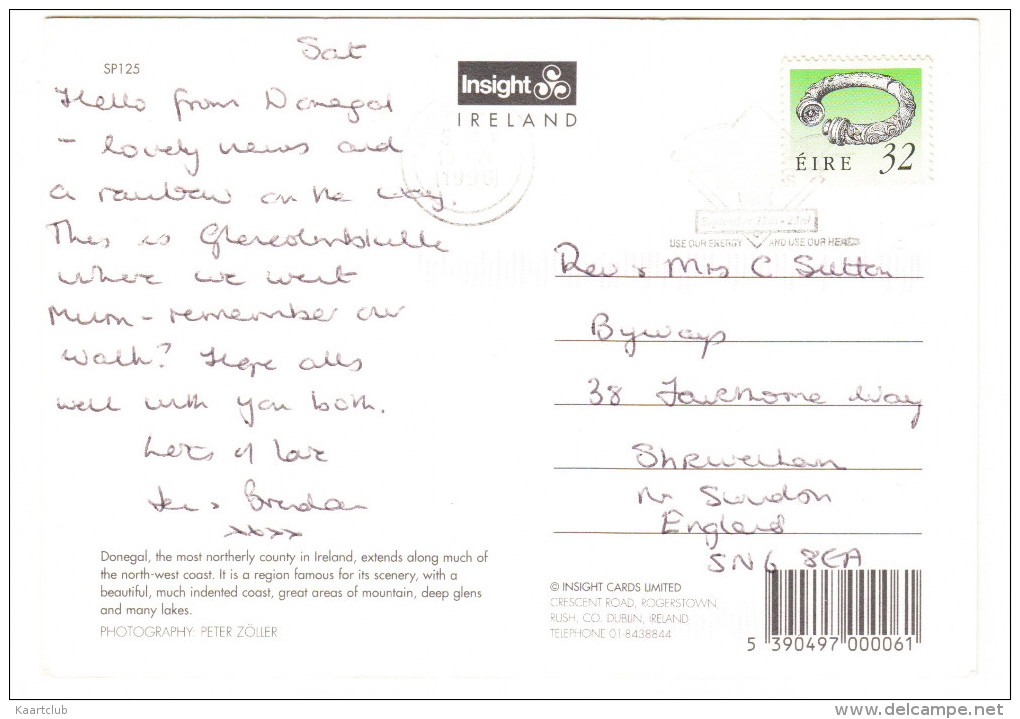 SP125
Sat
Hello from Donegal
- lovely news and
a rainbow on the way.
This is Glencolmbkille
where we went
Mum - remember our
walk? Hope alls
well with you both.
Lots of love
Jen & Brendan
xxxx
Donegal, the most northerly county in Ireland, extends along much of
the north-west coast. It is a region famous for its scenery, with a
beautiful, much indented coast, great areas of mountain, deep glens
and many lakes.
PHOTOGRAPHY: PETER ZÖLLER
Insight
IRELAND
1996
ÉIRE 32
USE OUR ENERGY AND USE OUR HEADS
Rev & Mrs C Sutton
Byways
38 Way
Shrivenham
nr Swindon
England
SN6 8EA
© INSIGHT CARDS LIMITED
CRESCENT ROAD, ROGERSTOWN,
RUSH, CO. DUBLIN, IRELAND
TELEPHONE 01-8438844
5 390497 000061
Kaartclub
www.delcampe.net